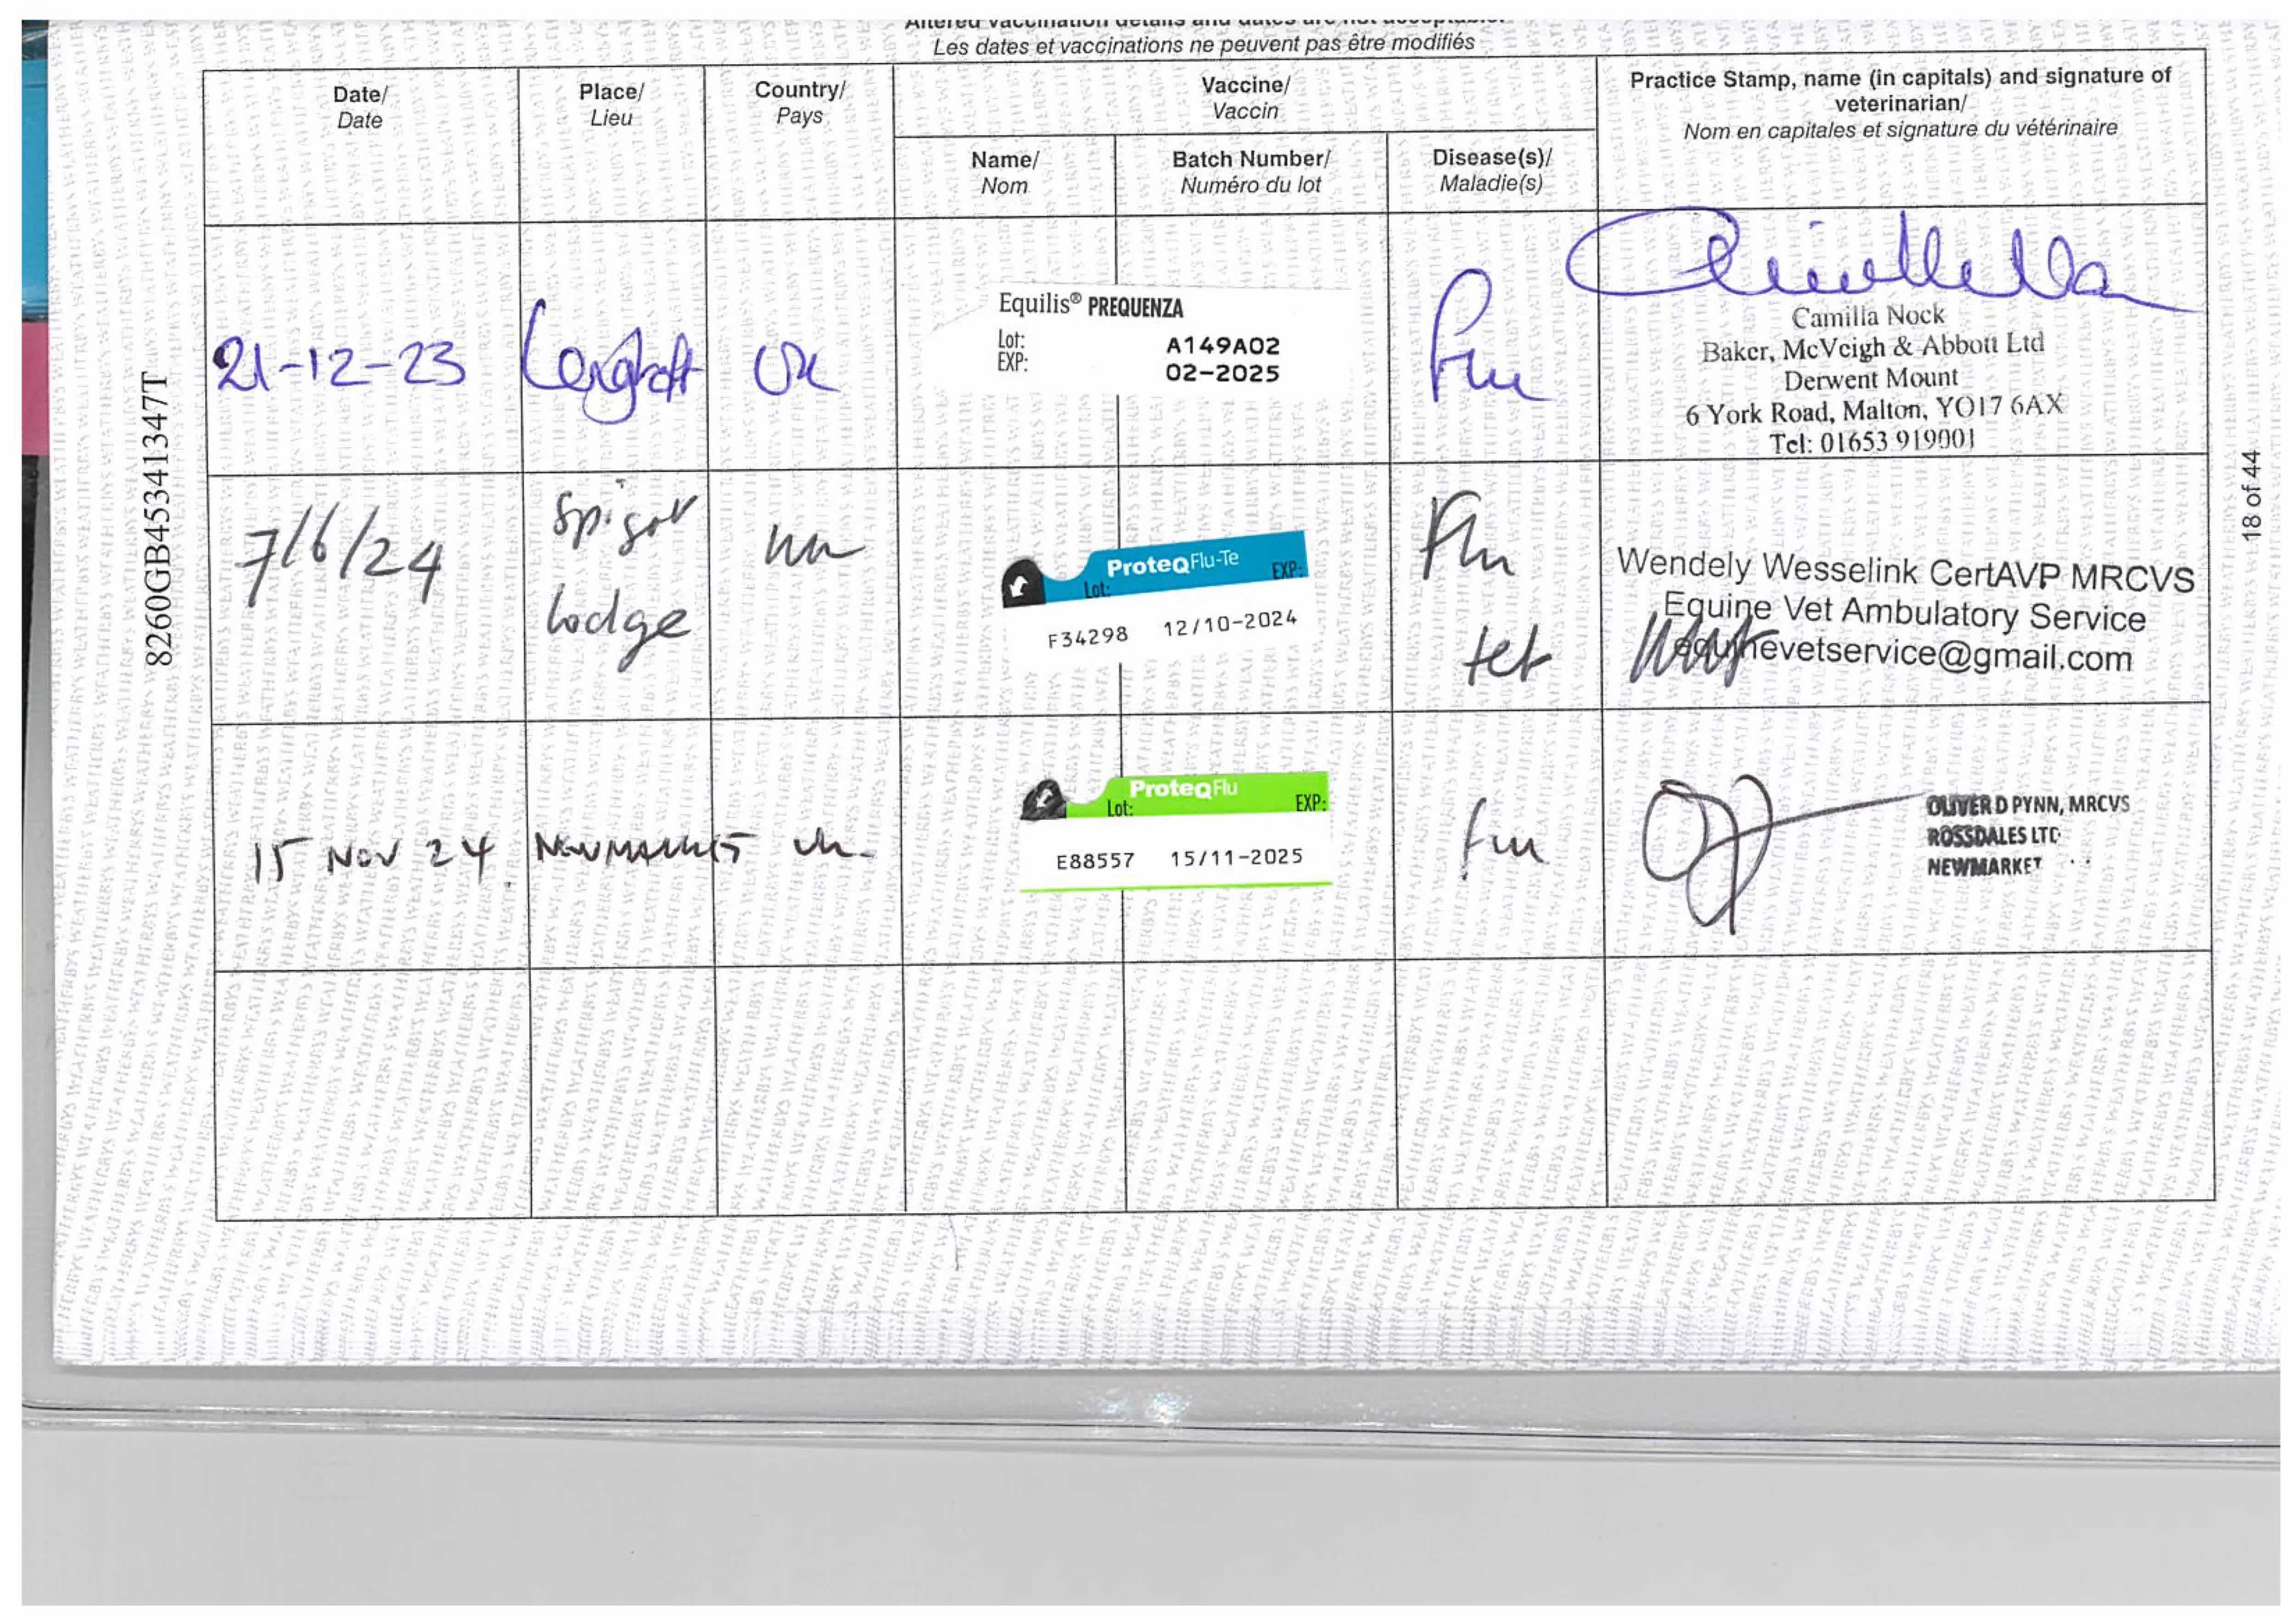 Altered vaccination details and dates are not acceptable.
Les dates et vaccinations ne peuvent pas être modifiés
Date/
Date
Place/
Lieu
Country/
Pays
Vaccine/
Vaccin
Name/
Nom
Batch Number/
Numéro du lot
Disease(s)/
Maladie(s)
Practice Stamp, name (in capitals) and signature of
veterinarian/
Nom en capitales et signature du vétérinaire
21-12-23
UK
Equilis® PREQUENZA
Lot: A149A02
EXP: 02-2025
Flu
Camilla Nock
Baker, McVeigh & Abbott Ltd
Derwent Mount
6 York Road, Malton, YO17 6AX
Tel: 01653 919001
7/6/24
Spigot
Lodge
UK
ProteqFlu-Te
Lot: EXP:
F34298 12/10-2024
Flu
tet
Wendely Wesselink CertAVP MRCVS
Equine Vet Ambulatory Service
equinevetservice@gmail.com
15 NOV 24
NEWMARKET
UK
ProteqFlu
Lot: EXP:
E88557 15/11-2025
Flu
OLIVER D PYNN, MRCVS
ROSSDALES LTD
NEWMARKET
8260GB45341347T
18 of 44